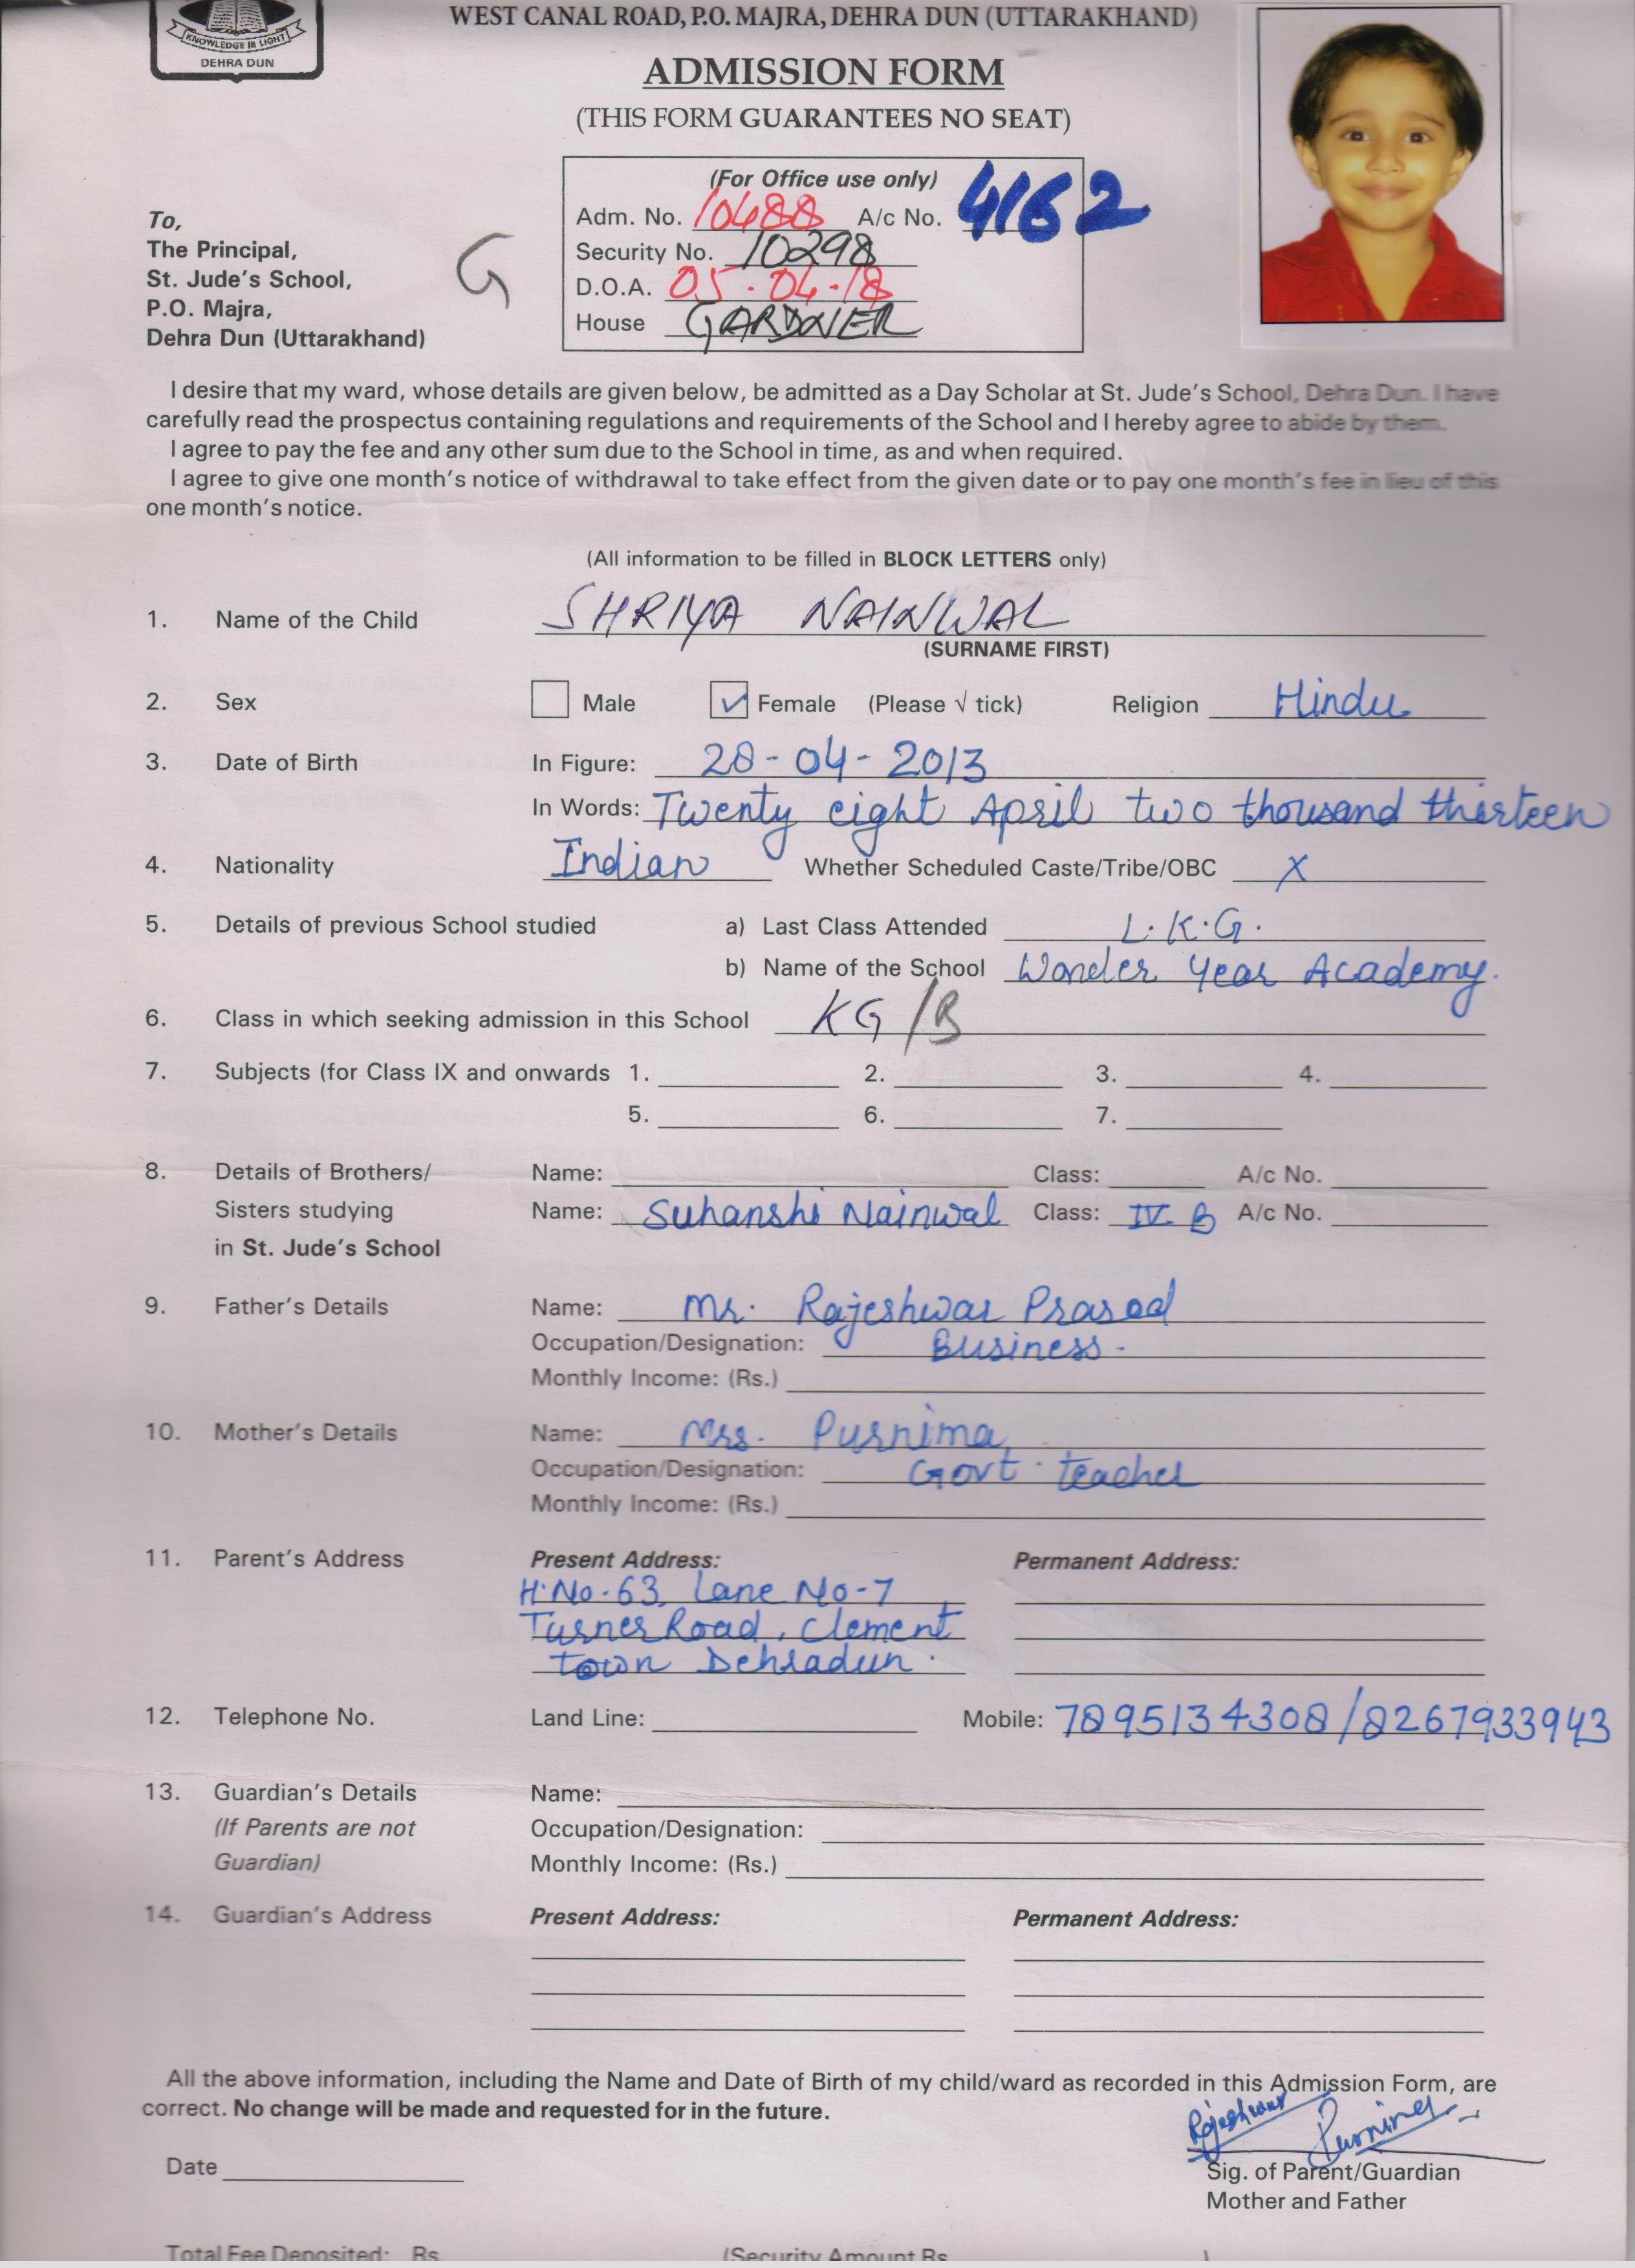 KNOWLEDGE IS LIGHT
DEHRA DUN
WEST CANAL ROAD, P.O. MAJRA, DEHRA DUN (UTTARAKHAND)
ADMISSION FORM
(THIS FORM GUARANTEES NO SEAT)
(For Office use only)
Adm. No. 10488 A/c No. 4162
Security No. 10298
D.O.A. 05.04.18
House GARDNER
To,
The Principal,
St. Jude's School,
P.O. Majra,
Dehra Dun (Uttarakhand)
G
I desire that my ward, whose details are given below, be admitted as a Day Scholar at St. Jude's School, Dehra Dun. I have
carefully read the prospectus containing regulations and requirements of the School and I hereby agree to abide by them.
I agree to pay the fee and any other sum due to the School in time, as and when required.
I agree to give one month's notice of withdrawal to take effect from the given date or to pay one month's fee in lieu of this
one month's notice.
(All information to be filled in BLOCK LETTERS only)
1. Name of the Child SHRIYA NAINWAL
(SURNAME FIRST)
2. Sex Male ✓ Female (Please √ tick) Religion Hindu
3. Date of Birth In Figure: 28-04-2013
In Words: Twenty eight April two thousand thirteen
4. Nationality Indian Whether Scheduled Caste/Tribe/OBC X
5. Details of previous School studied a) Last Class Attended L.K.G.
b) Name of the School Wonder Year Academy.
6. Class in which seeking admission in this School KG/B
7. Subjects (for Class IX and onwards 1. 2. 3. 4.
5. 6. 7.
8. Details of Brothers/ Name: Class: A/c No.
Sisters studying Name: Suhanshi Nainwal Class: IV. B A/c No.
in St. Jude's School
9. Father's Details Name: Mr. Rajeshwar Prasad
Occupation/Designation: Business.
Monthly Income: (Rs.)
10. Mother's Details Name: Mrs. Purnima
Occupation/Designation: Govt. teacher
Monthly Income: (Rs.)
11. Parent's Address Present Address: Permanent Address:
H.No.63, Lane No-7
Turner Road, Clement
town Dehradun.
12. Telephone No. Land Line: Mobile: 7895134308/8267933943
13. Guardian's Details Name:
(If Parents are not Occupation/Designation:
Guardian) Monthly Income: (Rs.)
14. Guardian's Address Present Address: Permanent Address:
All the above information, including the Name and Date of Birth of my child/ward as recorded in this Admission Form, are
correct. No change will be made and requested for in the future.
Rajeshwar Purnima
Date
Sig. of Parent/Guardian
Mother and Father
Total Fee Deposited: Rs. (Security Amount Rs. )